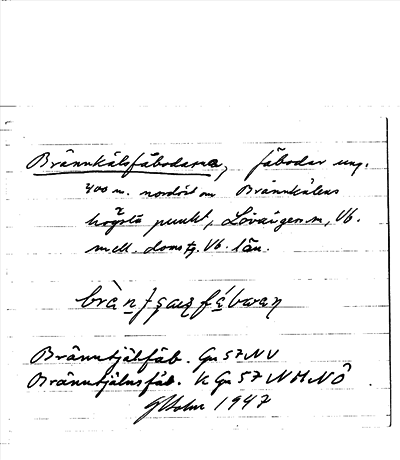 Brännkälsfäbodarna, fäbodar ung.
400 m. nordöst om Brännkälens
högsta punkt, Lövångers sn, Vb.
mell. domsg. Vb. län.
Brännkjälfäb. Gu 57 NV
Brännkjälnsfäb. K Gu 57 N M NÖ
1947